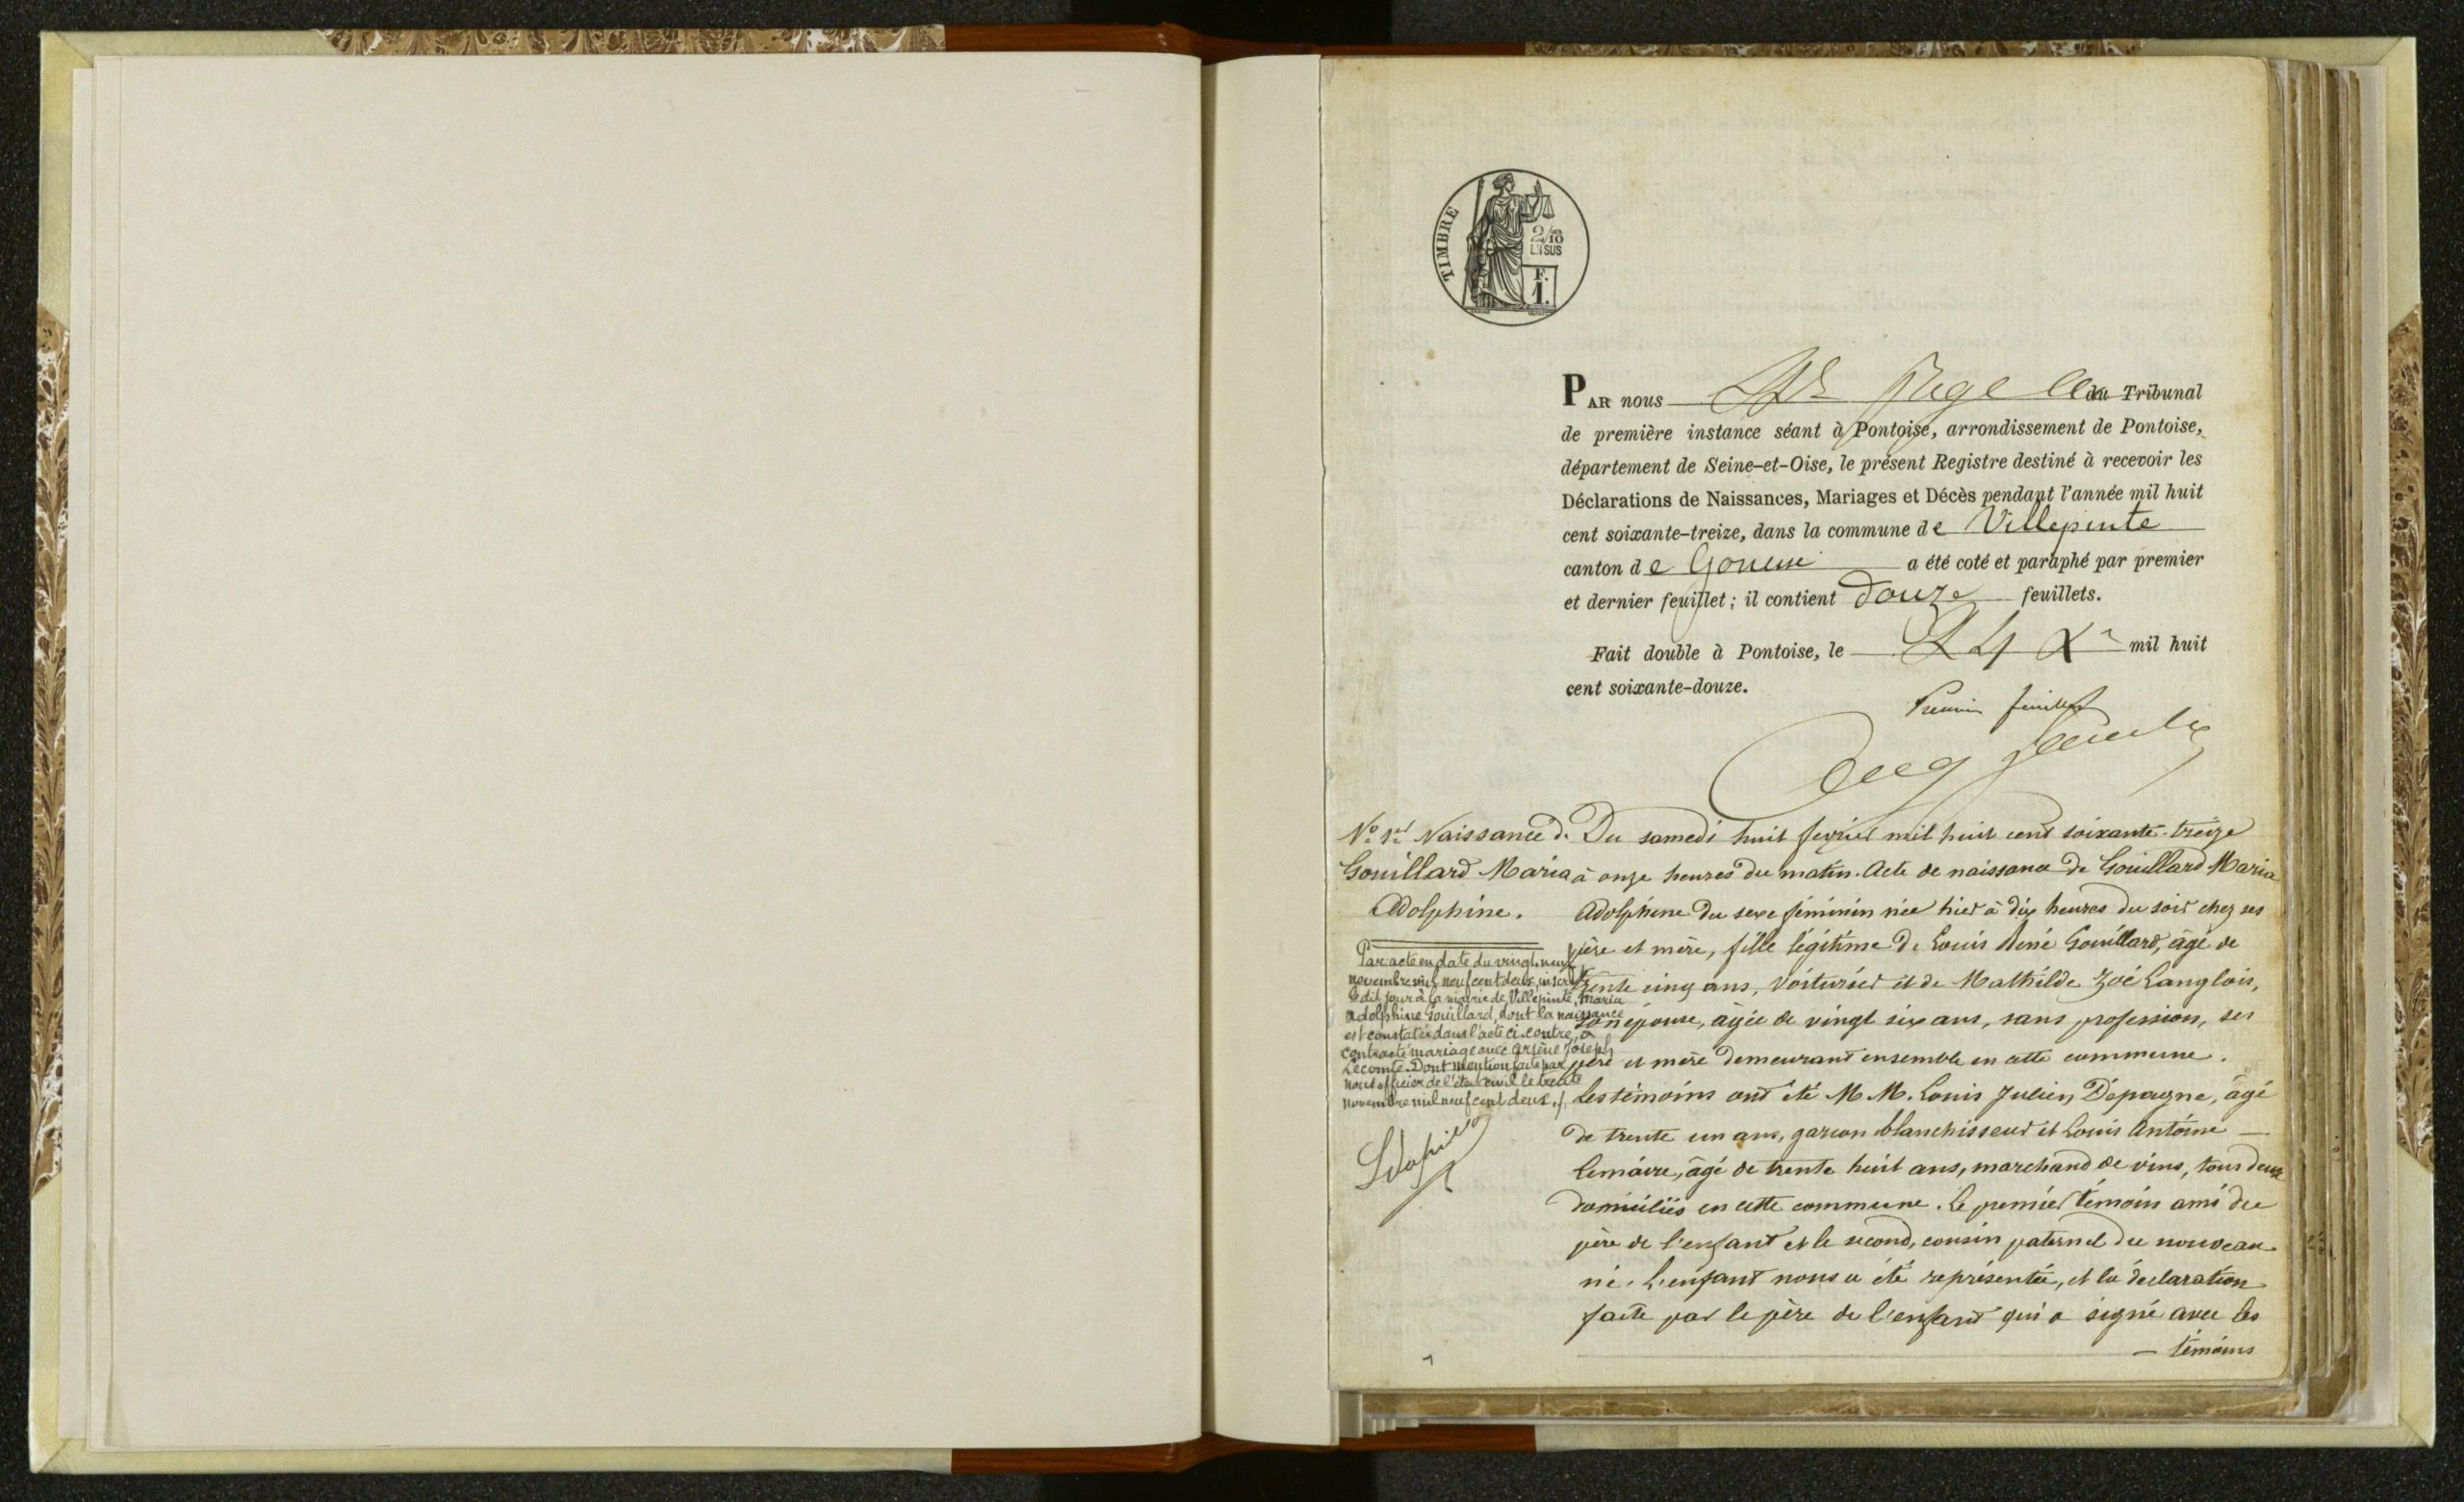 TIMBRE
2/10
EN SUS
F.
1.
PAR nous Juge du Tribunal
de première instance séant à Pontoise, arrondissement de Pontoise,
département de Seine-et-Oise, le présent Registre destiné à recevoir les
Déclarations de Naissances, Mariages et Décès pendant l'année mil huit
cent soixante-treize, dans la commune de Villepinte
canton de Gonesse a été coté et paraphé par premier
et dernier feuillet ; il contient douze feuillets.
Fait double à Pontoise, le 24 Xre mil huit
cent soixante-douze.
Premier feuillet
No 1er Naissance de
Gouillard Maria
Adolphine.
Par acte en date du vingt-neuf
novembre mil neuf cent deux, inscrit
le dit jour à la mairie de Villepinte, Maria
Adolphine Gouillard, dont la naissance
est constatée dans l'acte ci-contre, a
contracté mariage avec Arsène Joseph
Lecomte. Dont mention faite par
nous officier de l'état civil le trente
novembre mil neuf cent deux.
Du samedi huit février mil huit cent soixante-treize
à onze heures du matin. Acte de naissance de Gouillard Maria
Adolphine du sexe féminin née hier à dix heures du soir chez ses
père et mère, fille légitime de Louis René Gouillard, âgé de
trente cinq ans, voiturier et de Mathilde Zoé Langlois,
son épouse, âgée de vingt six ans, sans profession, ses
père et mère demeurant ensemble en cette commune.
Les témoins ont été M. M. Louis Julien Dépoigne, âgé
de trente un ans, garçon blanchisseur et Louis Antoine
Lemaire, âgé de trente huit ans, marchand de vins, tous deux
domiciliés en cette commune. Le premier témoin ami du
père de l'enfant et le second, cousin paternel du nouveau
né. L'enfant nous a été représentée, et la déclaration
faite par le père de l'enfant qui a signé avec les
témoins